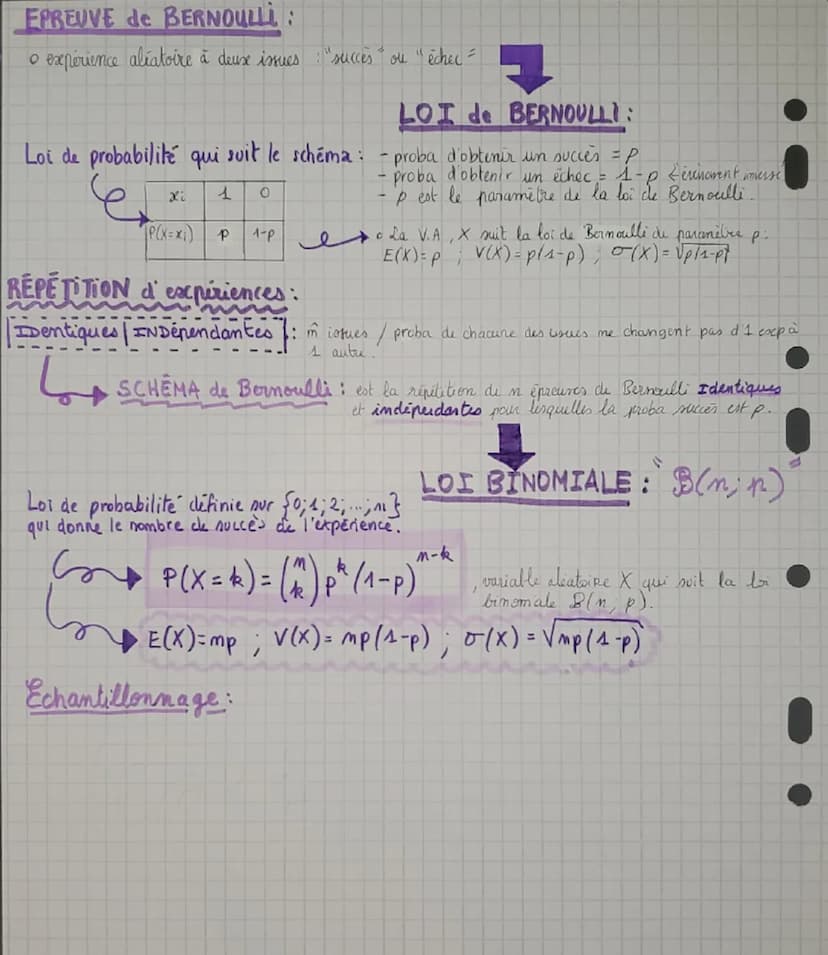 EPREUVE de BERNOULLI :
o expérience aléatoire à deux issues : "succès" ou "échec"
LOI de BERNOULLI :
Loi de probabilité qui suit le schéma : - proba d'obtenir un succès = p
- proba d'obtenir un échec = 1-p
- p est le paramètre de la loi de Bernoulli.
xi 1 0
P(X=xi) p 1-p
o La V.A, X suit la loi de Bernoulli de paramètre p.
E(X)=p ; V(X)=p(1-p) ; σ(X)=√p(1-p)
RÉPÉTITION d'expériences :
|IDentiques|INDépendantes| : m̂ issues / proba de chacune des issues ne changent pas d'1 exp à
1 autre.
SCHÉMA de Bernoulli : est la répétition de n épreuves de Bernoulli Identiques
et indépendantes pour lesquelles la proba succès est p.
LOI BINOMIALE : "B(n;p)"
Loi de probabilité définie sur {0;1;2;...;n}
qui donne le nombre de succès de l'expérience.
P(X=k) = (n k) p^k (1-p)^n-k , variable aleatoire X qui suit la loi
binomale B(n, p).
E(X)=np ; V(X)=np(1-p) ; σ(X)=√np(1-p)
Echantillonnage :